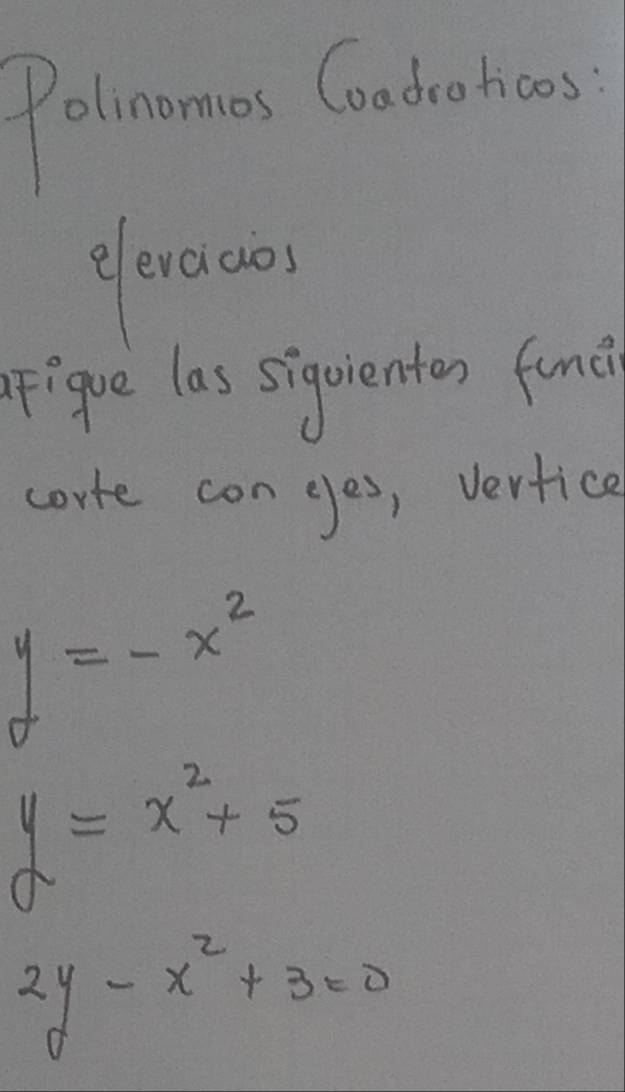 Polinomios Cuadraticos:
ejercicios
afique las siguientes funci
corte con ejes, Vertice
y = - x²
y = x² + 5
2y - x² + 3 = 0